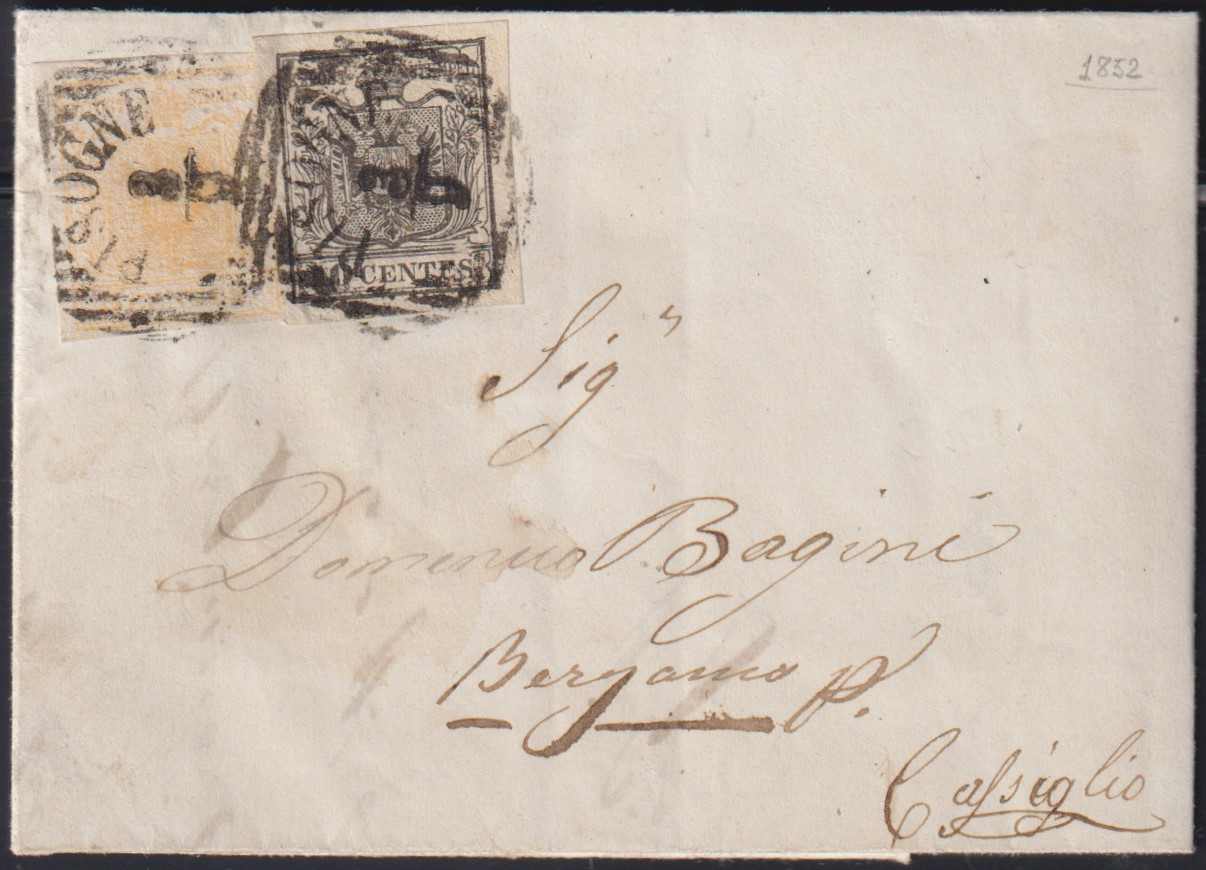 1852
PISOGNE
PISOGNE
10 CENTES
Sigr
Domenico Bagini
Bergamo p.
Cassiglio